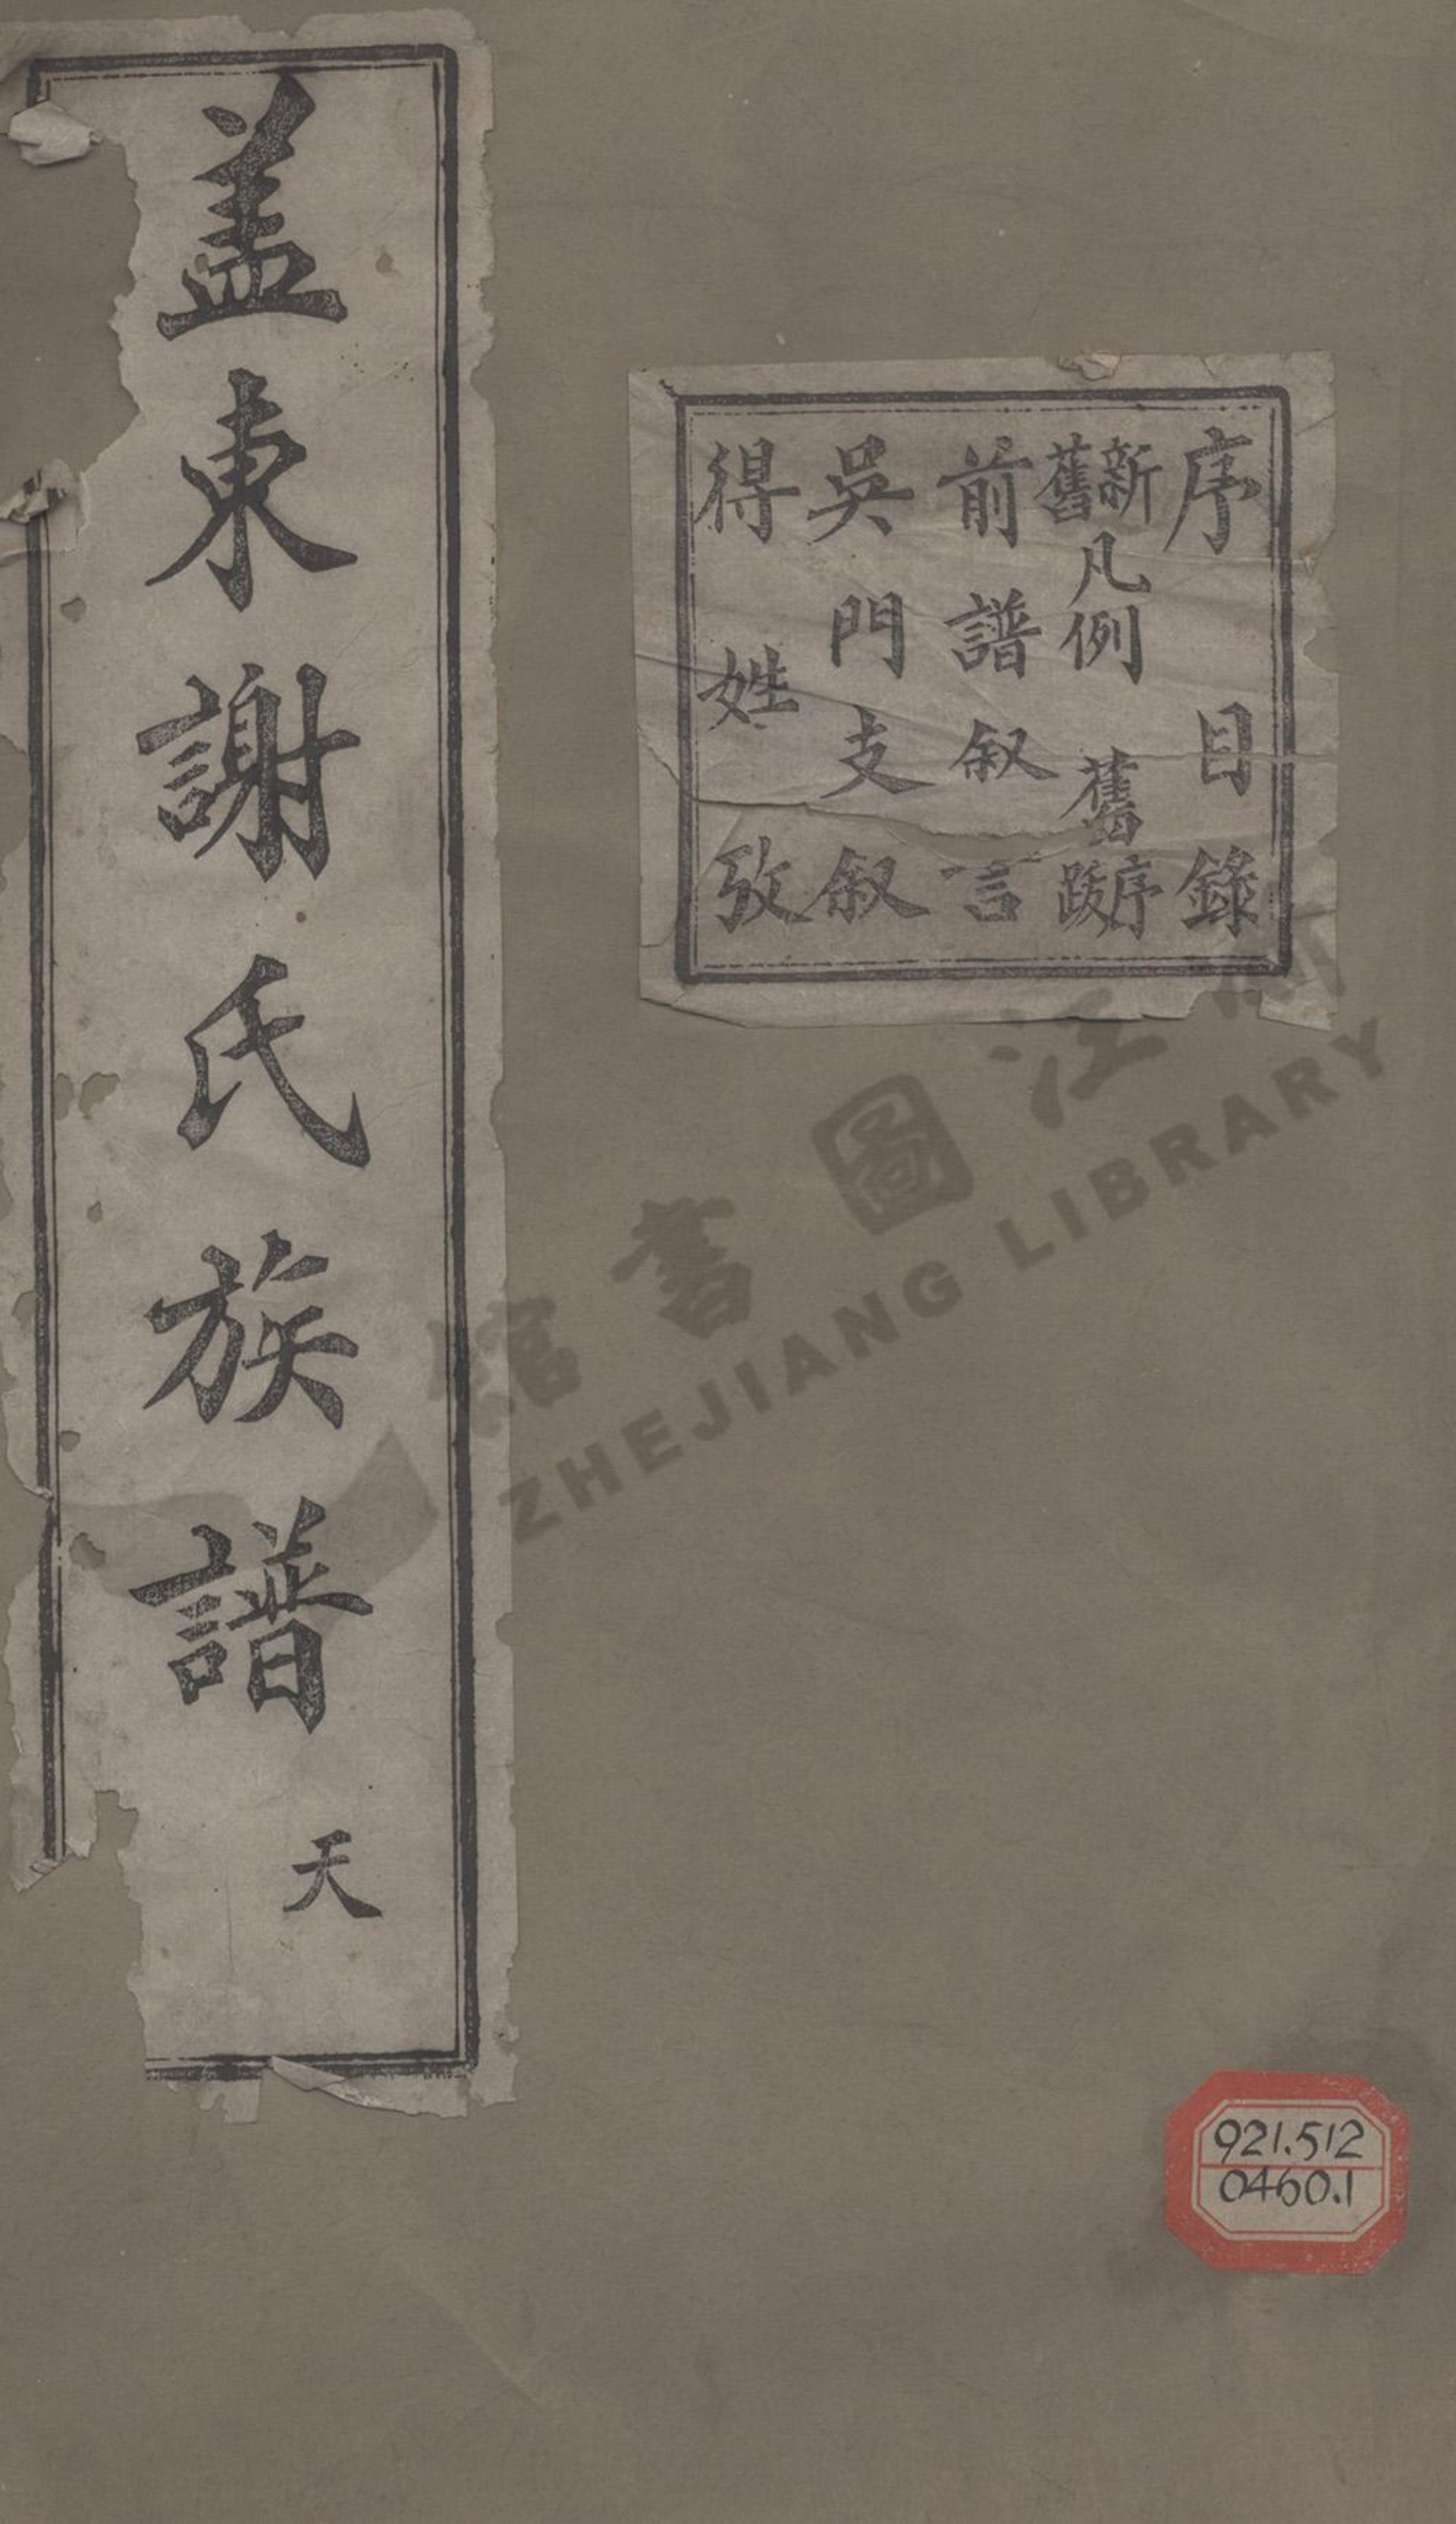 盖東謝氏族譜 天
序目錄
新舊凡例 舊序跋
前譜叙言
吳門支叙
得姓攷
921.512
0460.1
浙江圖書館
ZHEJIANG LIBRARY